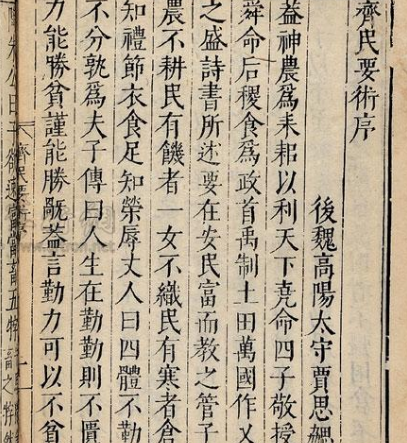 齊民要術序
後魏高陽太守賈思勰
葢神農爲耒耜以利天下堯命四子敬授
舜命后稷食爲政首禹制土田萬國作乂
之盛詩書所述要在安民富而教之管子
農不耕民有饑者一女不織民有寒者倉
知禮節衣食足知榮辱丈人曰四體不勤
不分孰爲夫子傳曰人生在勤勤則不匱
力能勝貧謹能勝旤葢言勤力可以不貧
齊民要
朱公曰子欲速富畜五牸